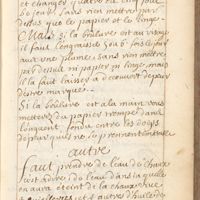 et changés quatre ou cinq jour
sans rien mettre par
dessus que le papier et le linge.
Mais si la brûlure est au visage
il faut l'engraisser 5 ou 6 fois le jour
avec une plume, sans rien mettre
par dessus ni papier ni linge, mais
il la faut laisser a decouvert de peur
destre marqués.
Si la brûlure est a la main vous
mettrez du papier trempé dans
longuent fondu entre les doigts
depeur quils ne se prennent lun a lautre
autre
faut prendre de leau de chaux
cest adire de leau dans laquelle
on aura eteint de la chaux vive
et autres d'huile de